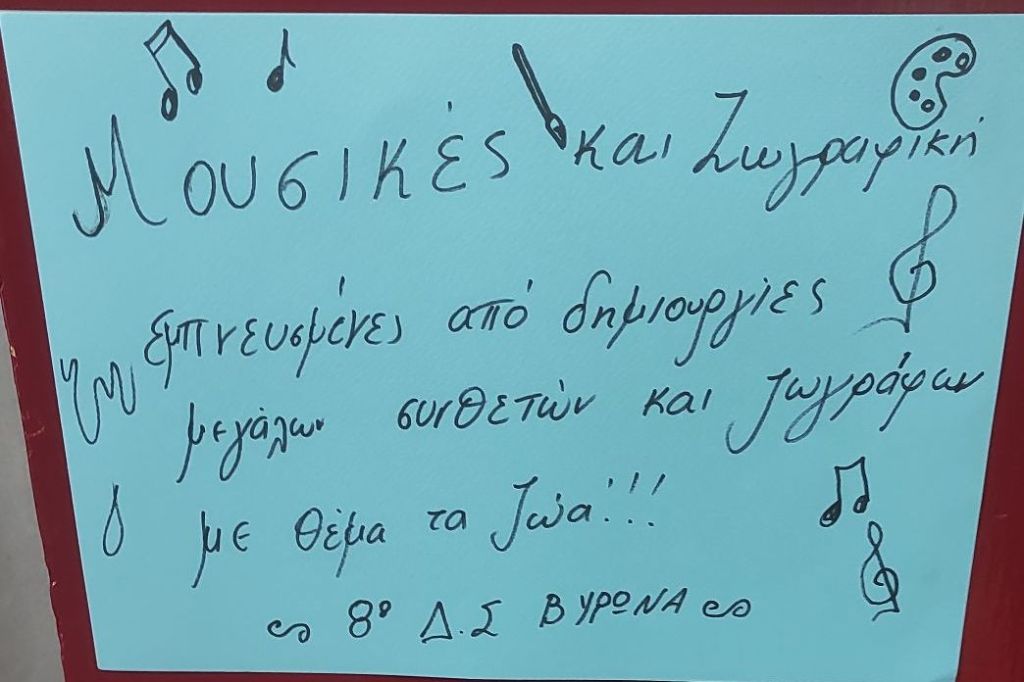 Μουσικές και Ζωγραφική
εμπνευσμένες από δημιουργίες
μεγάλων συνθετών και ζωγράφων
με θέμα τα ζώα!!!
8º Δ.Σ ΒΥΡΩΝΑ